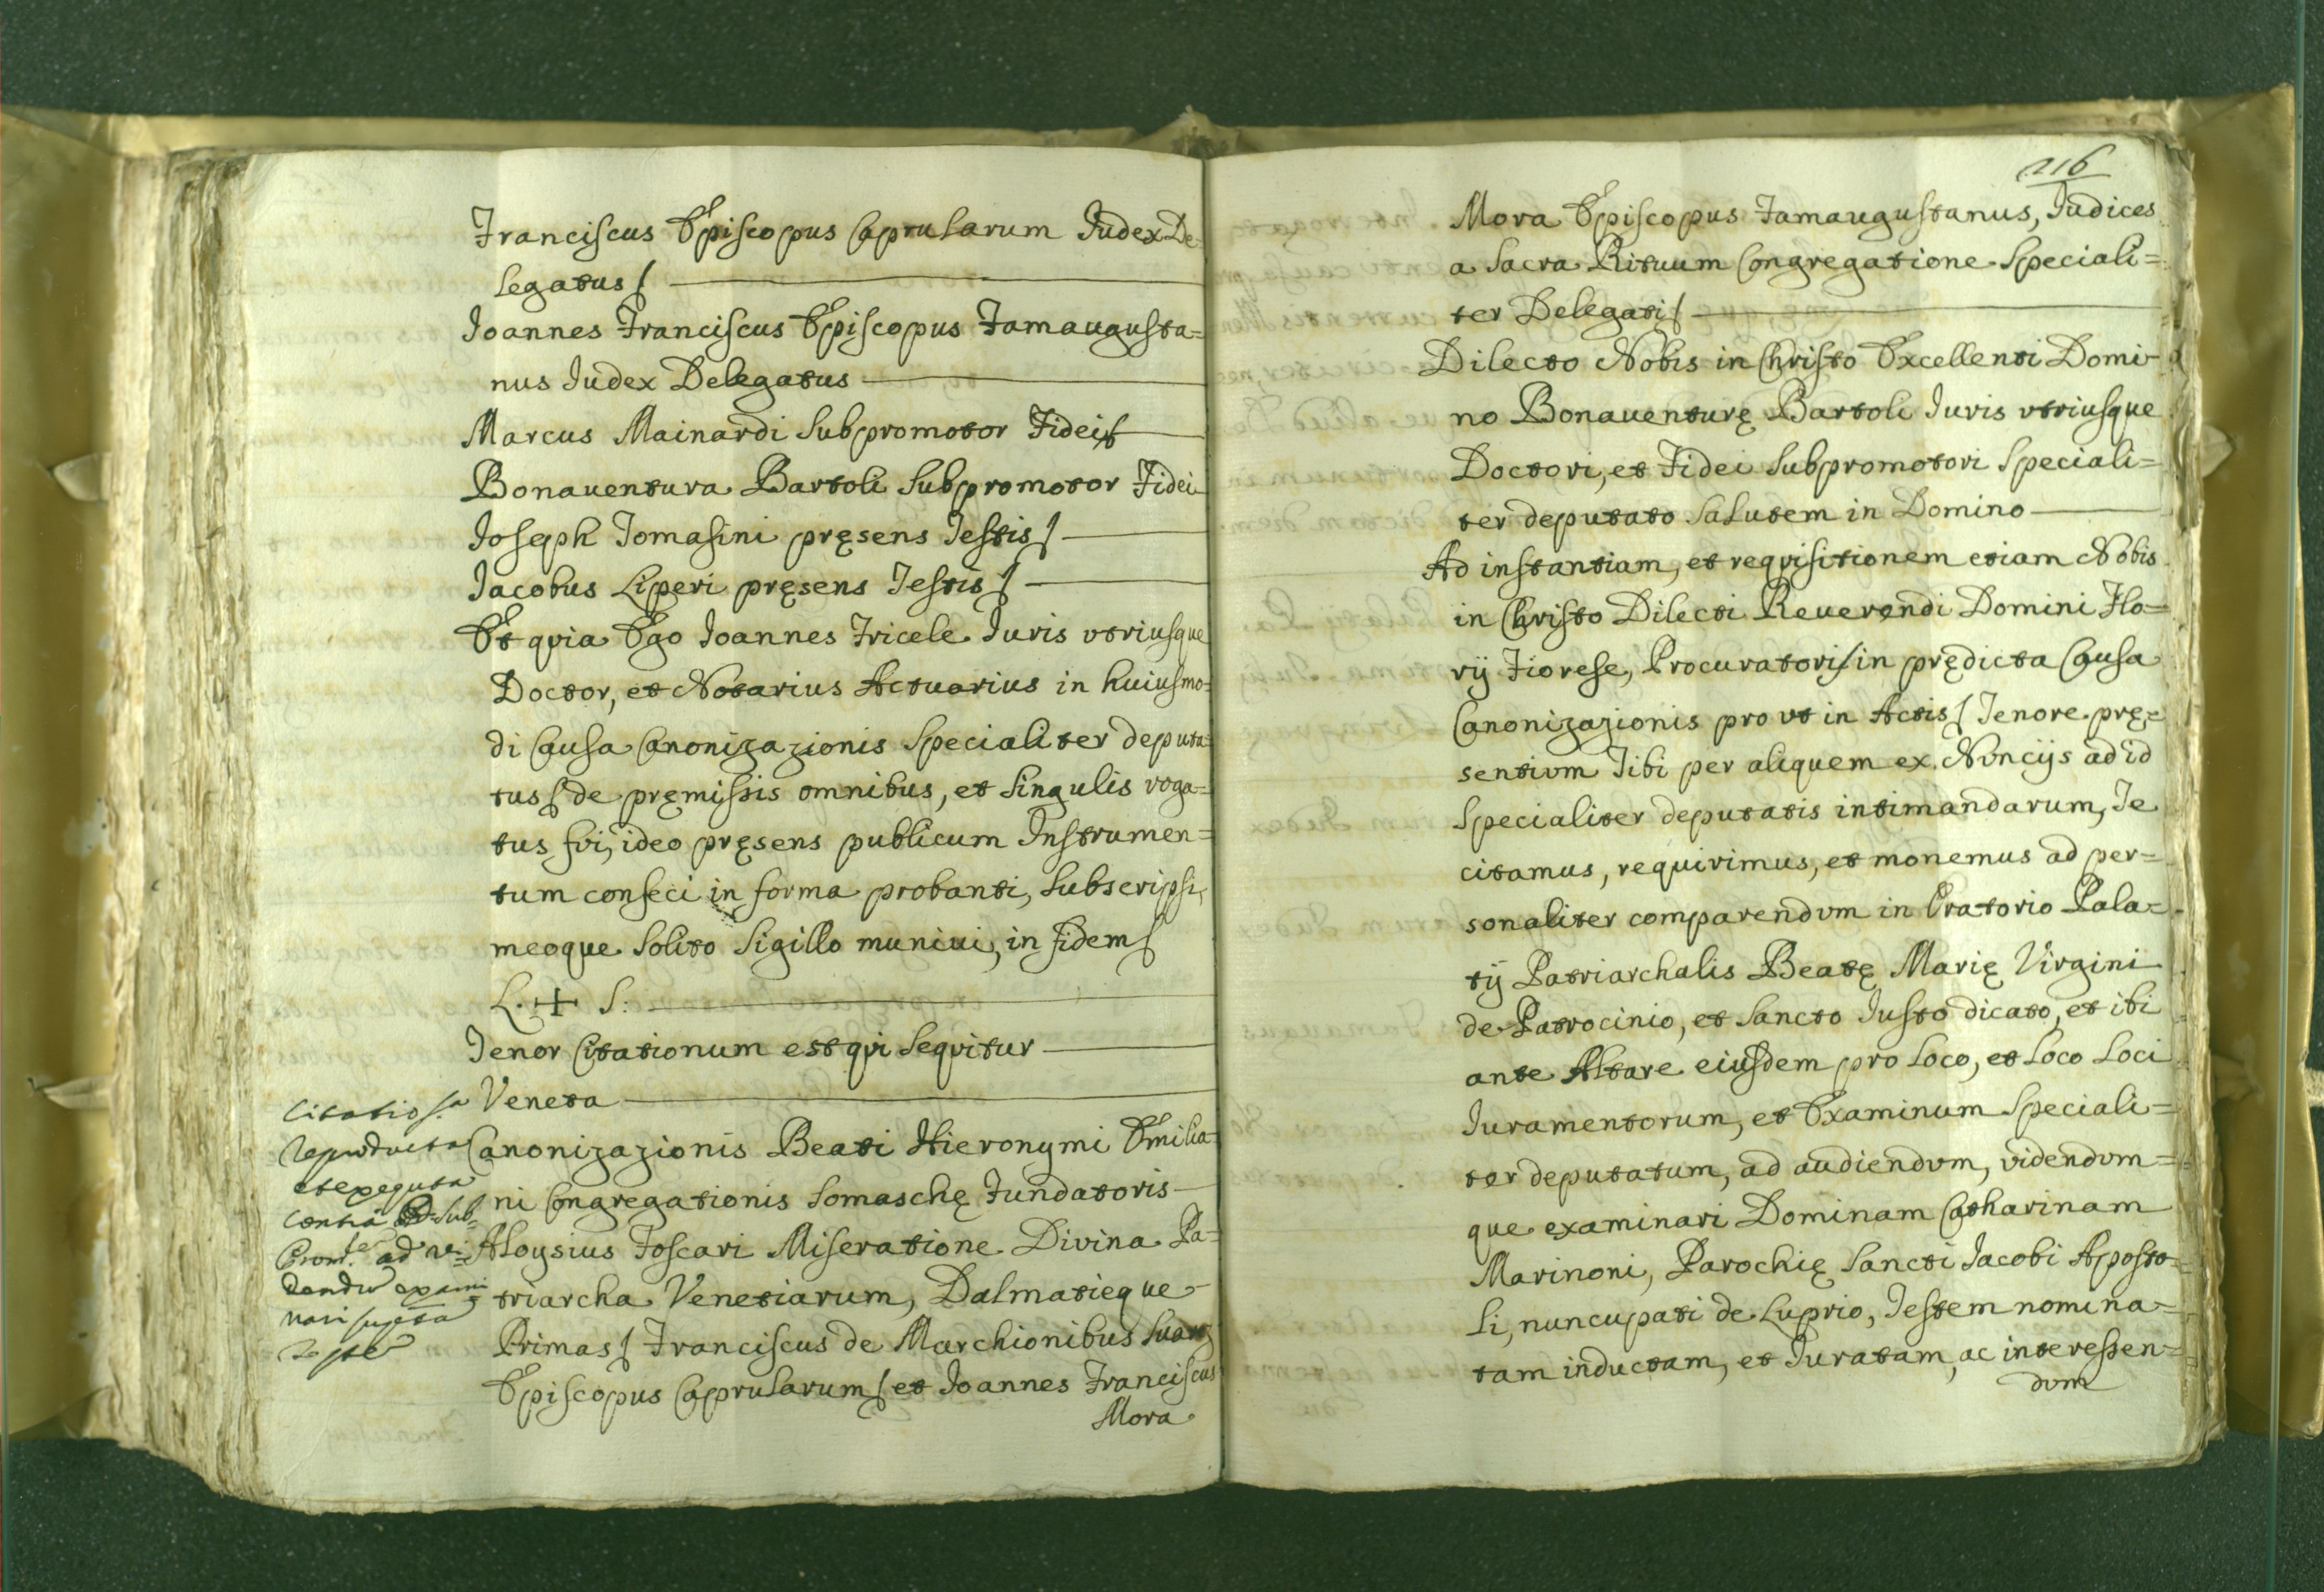 Franciscus Episcopus Caprularum Iudex De-
legatus
Ioannes Franciscus Episcopus Famaugusta=
nus Iudex Delegatus
Marcus Mainardi Subpromotor Fidei
Bonauentura Bartoli Subpromotor Fidei
Ioseph Tomasini pręsens Testis
Iacobus Liperi pręsens Testis
Et quia Ego Ioannes Fricele Iuris vtriusque
Doctor, et Notarius Actuarius in huiusmo=
di Causa Canonizazionis Specialiter deputa=
tus de pręmissis omnibus, et Singulis roga=
tus fui, ideo pręsens publicum Instrumen=
tum confeci in forma probanti, Subscripsi,
meoque Solito Sigillo muniui, in fidem
L. + S:
Tenor Citationum est qui Sequitur
Veneta
Canonizazionis Beati Hieronymi Emilia=
ni Congregationis Somaschę Fundatoris
Aloysius Foscari Miseratione Divina Pa=
triarcha Venetiarum, Dalmatieque
Primas Franciscus de Marchionibus Suarez
Episcopus Caprularum et Ioannes Franciscus
Mora
Citatio
reproducta
et exequta
contra Sub
Prom. ad vi=
dendum exami
nari
216
Mora Episcopus Famaugustanus, Iudices
a Sacra Rituum Congregatione Speciali=
ter Delegati
Dilecto Nobis in Christo Excellenti Domi-
no Bonauenturę Bartoli Iuris vtriusque
Doctori, et Fidei Subpromotori Speciali=
ter deputato Salutem in Domino
Ad instantiam, et requisitionem etiam Nobis
in Christo Dilecti Reuerendi Domini Flo=
rij Fiorese, Procuratoris in prędicta Causa
Canonizazionis pro vt in Actis Tenore prę=
sentium Tibi per aliquem ex Nuncijs ad id
Specialiter deputatis intimandarum, Te
citamus, requirimus, et monemus ad per=
sonaliter comparendum in Oratorio Pala=
tij Patriarchalis Beatę Marię Virgini
de Patrocinio, et Sancto Iusto dicato, et ibi
ante Altare eiusdem pro Loco, et Loco Loci
Iuramentorum, et Examinum Speciali=
ter deputatum, ad audiendum, videndum=
que examinari Dominam Catharinam
Marinoni, Parochię Sancti Iacobi Aposto=
li, nuncupati de Luprio, Testem nomina=
tam inductam, et Iuratam, ac interessen=
dum